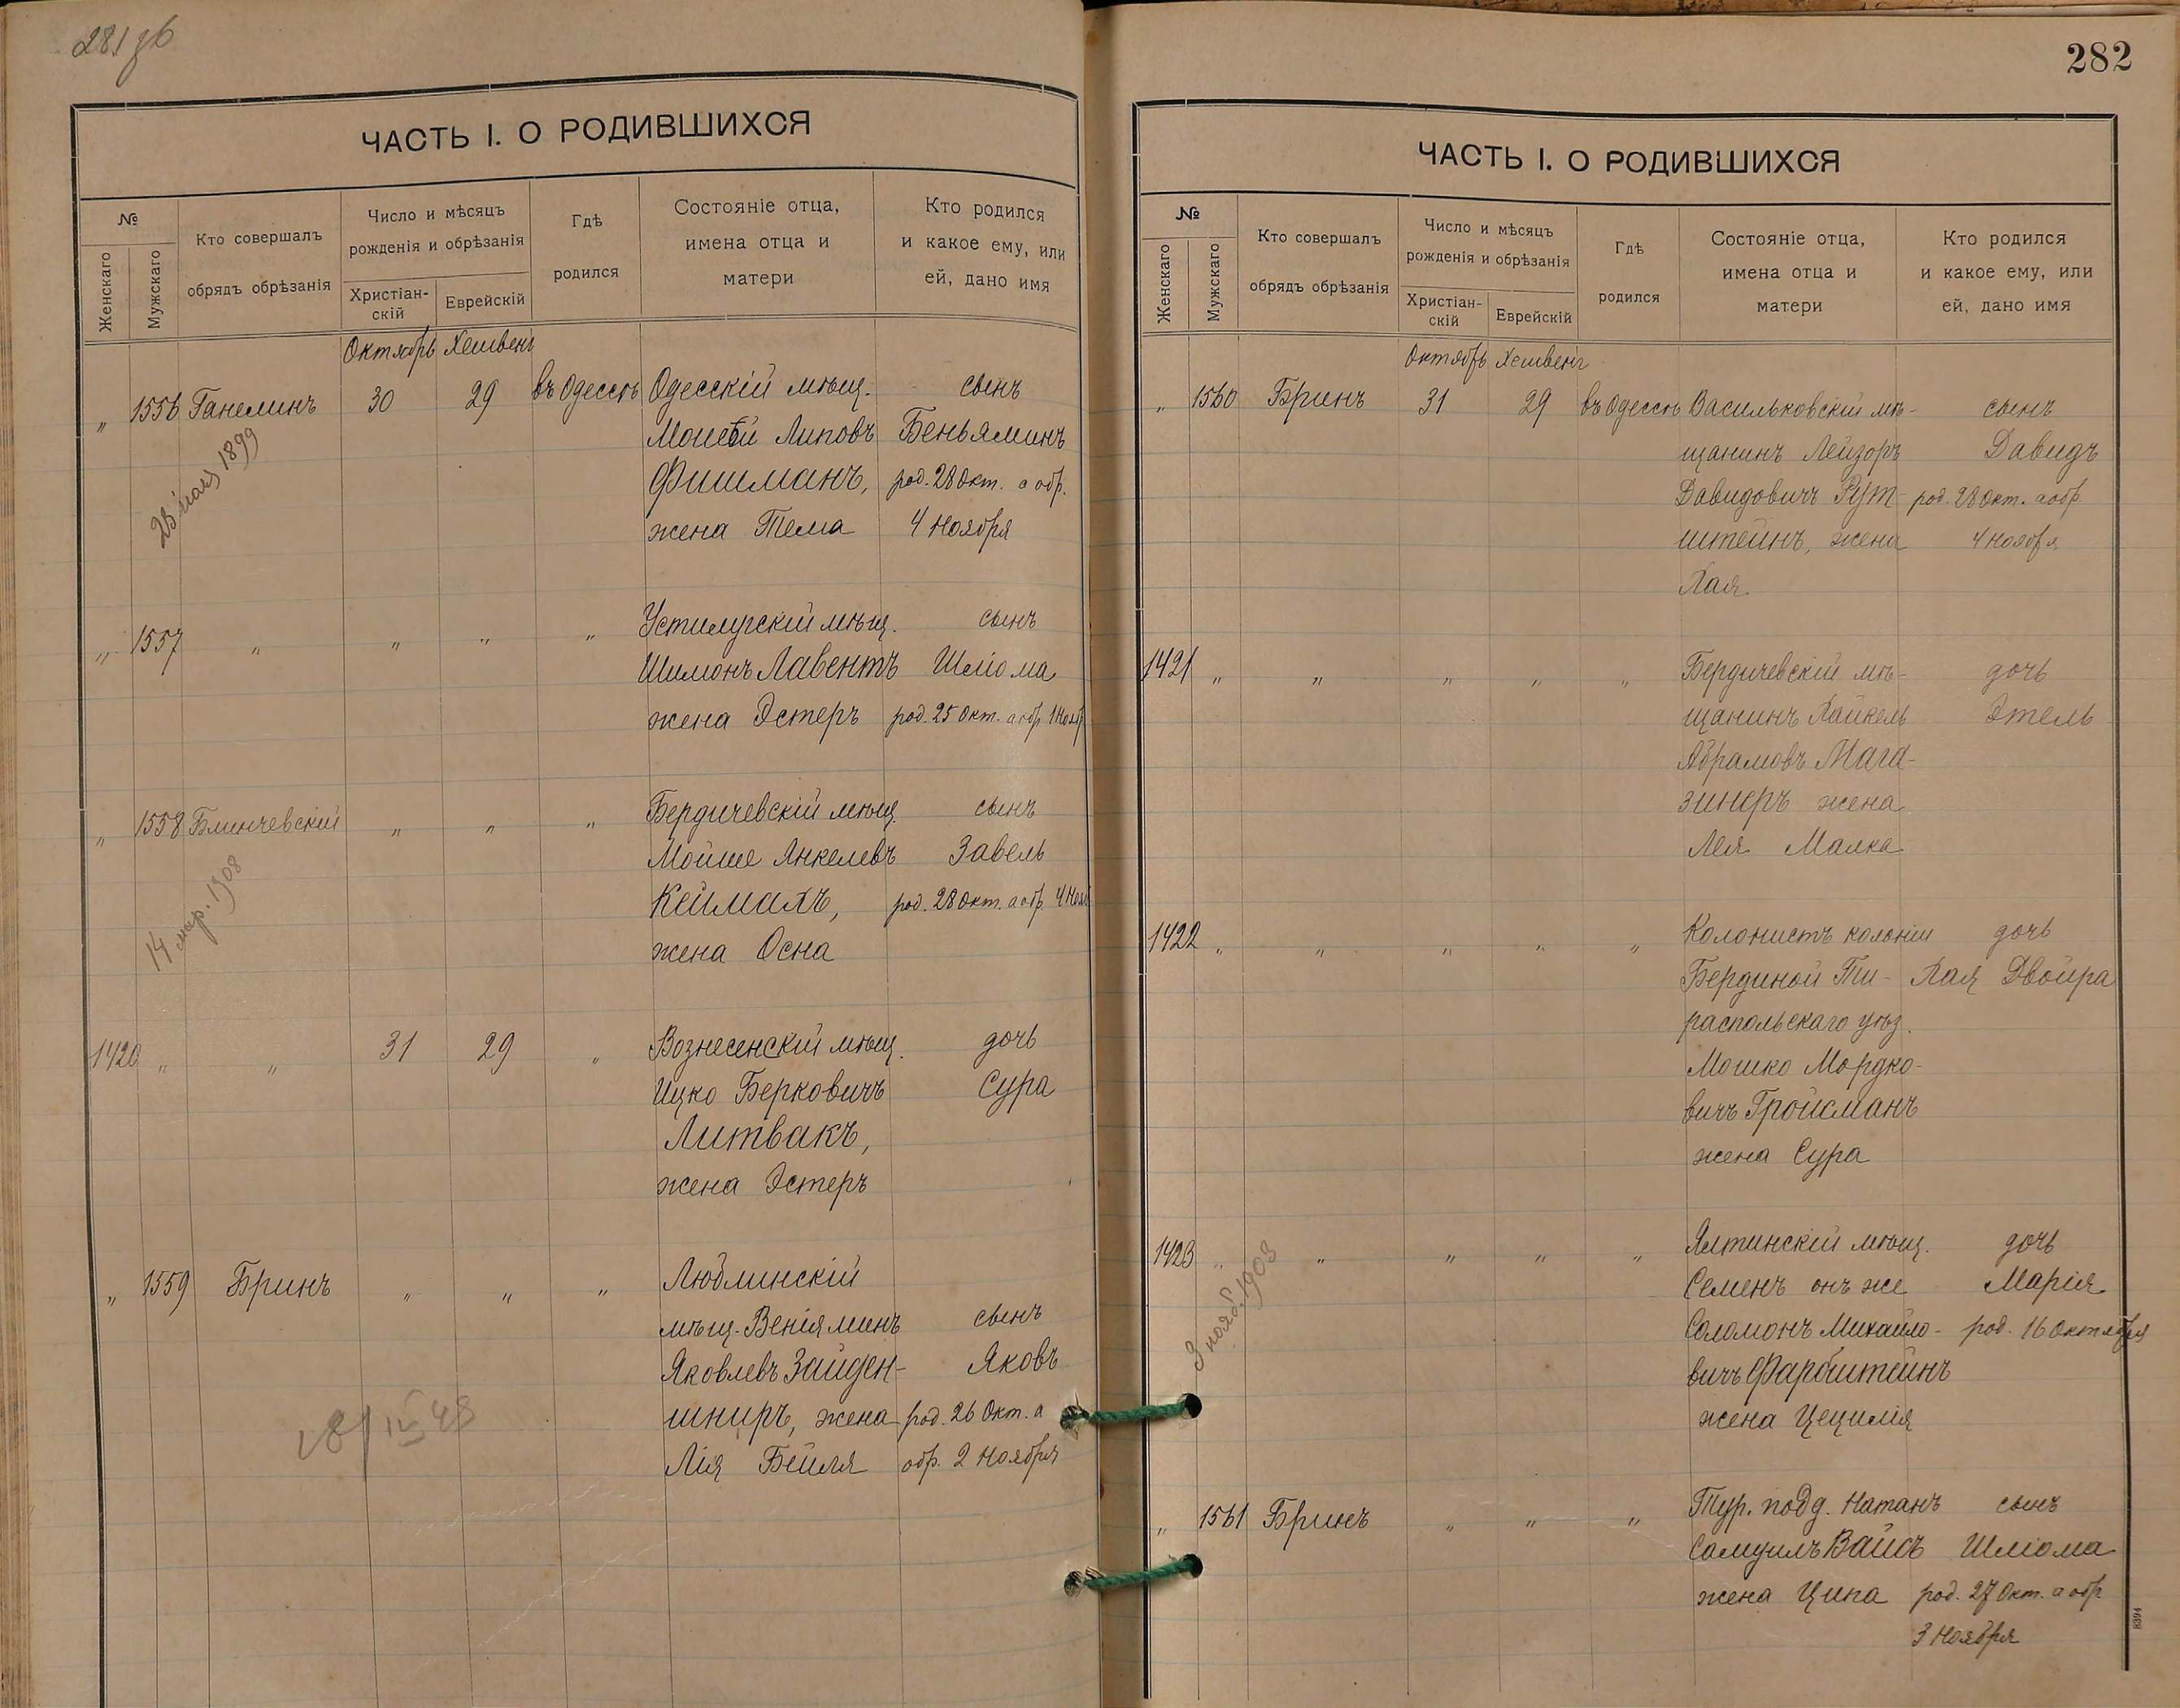 281 об
ЧАСТЬ I. О РОДИВШИХСЯ
№
Женскаго
Мужскаго
Кто совершалъ
обрядъ обрѣзанія
Число и мѣсяцъ
рожденія и обрѣзанія
Христіан-
скій
Еврейскій
Гдѣ
родился
Состояніе отца,
имена отца и
матери
Кто родился
и какое ему, или
ей, дано имя
Октябрь Хешвенъ
" 1556 Ганелинъ 30 29 въ Одессѣ Одесскій мѣщ. сынъ
Моисей Липовъ Беньяминъ
Фишманъ, род. 28 Окт. а обр.
жена Тема 4 Ноября
1899
" 1557 " " " " Устилугскій мѣщ. сынъ
Шимонъ Лавентъ Шліома
жена Эстеръ род. 25 Окт. а обр. 1 Нояб
" 1558 Блинчевскій " " " Бердичевскій мѣщ. сынъ
Мойше Янкелевъ Завель
род. 28 Окт. а обр. 4 Нояб
жена Осна
14 мар. 1908
1420 " " 31 29 " Вознесенскій мѣщ. дочь
Ицко Берковичъ Сура
Литвакъ,
жена Эстеръ
" 1559 Бринъ " " " Люблинскій
мѣщ. Веніяминъ сынъ
Яковлевъ Зайден- Яковъ
шниръ, жена род. 26 Окт. а
Лія Бейля обр. 2 Ноября
282
ЧАСТЬ I. О РОДИВШИХСЯ
№
Женскаго
Мужскаго
Кто совершалъ
обрядъ обрѣзанія
Число и мѣсяцъ
рожденія и обрѣзанія
Христіан-
скій
Еврейскій
Гдѣ
родился
Состояніе отца,
имена отца и
матери
Кто родился
и какое ему, или
ей, дано имя
Октябрь Хешвенъ
" 1560 Бринъ 31 29 въ Одессѣ Васильковскій мѣ- сынъ
щанинъ Лейзоръ Давидъ
Давидовичъ Рут- род. 28 Окт. а обр.
штейнъ, жена 4 Ноября
Хая
1421 " " " " " Бердичевскій мѣ- дочь
щанинъ Хайкель Этель
Абрамовъ Мага-
зинеръ жена
Лея Малка
1422 " " " " " Колонистъ колоніи дочь
Бердиной Ти- Хая Двойра
распольскаго уѣз.
Мошко Мордко-
вичъ Гройсманъ
жена Сура
1423 " " " " " Ялтинскій мѣщ. дочь
Семенъ онъ же Марія
Соломонъ Михайло- род. 16 Октября
вичъ Фарбштейнъ
жена Цецилія
нояб. 1903
" 1561 Бринъ " " " Тур. подд. Натанъ сынъ
Самуилъ Вайсъ Шліома
жена Ципа род. 27 Окт. а обр
3 Ноября
8394